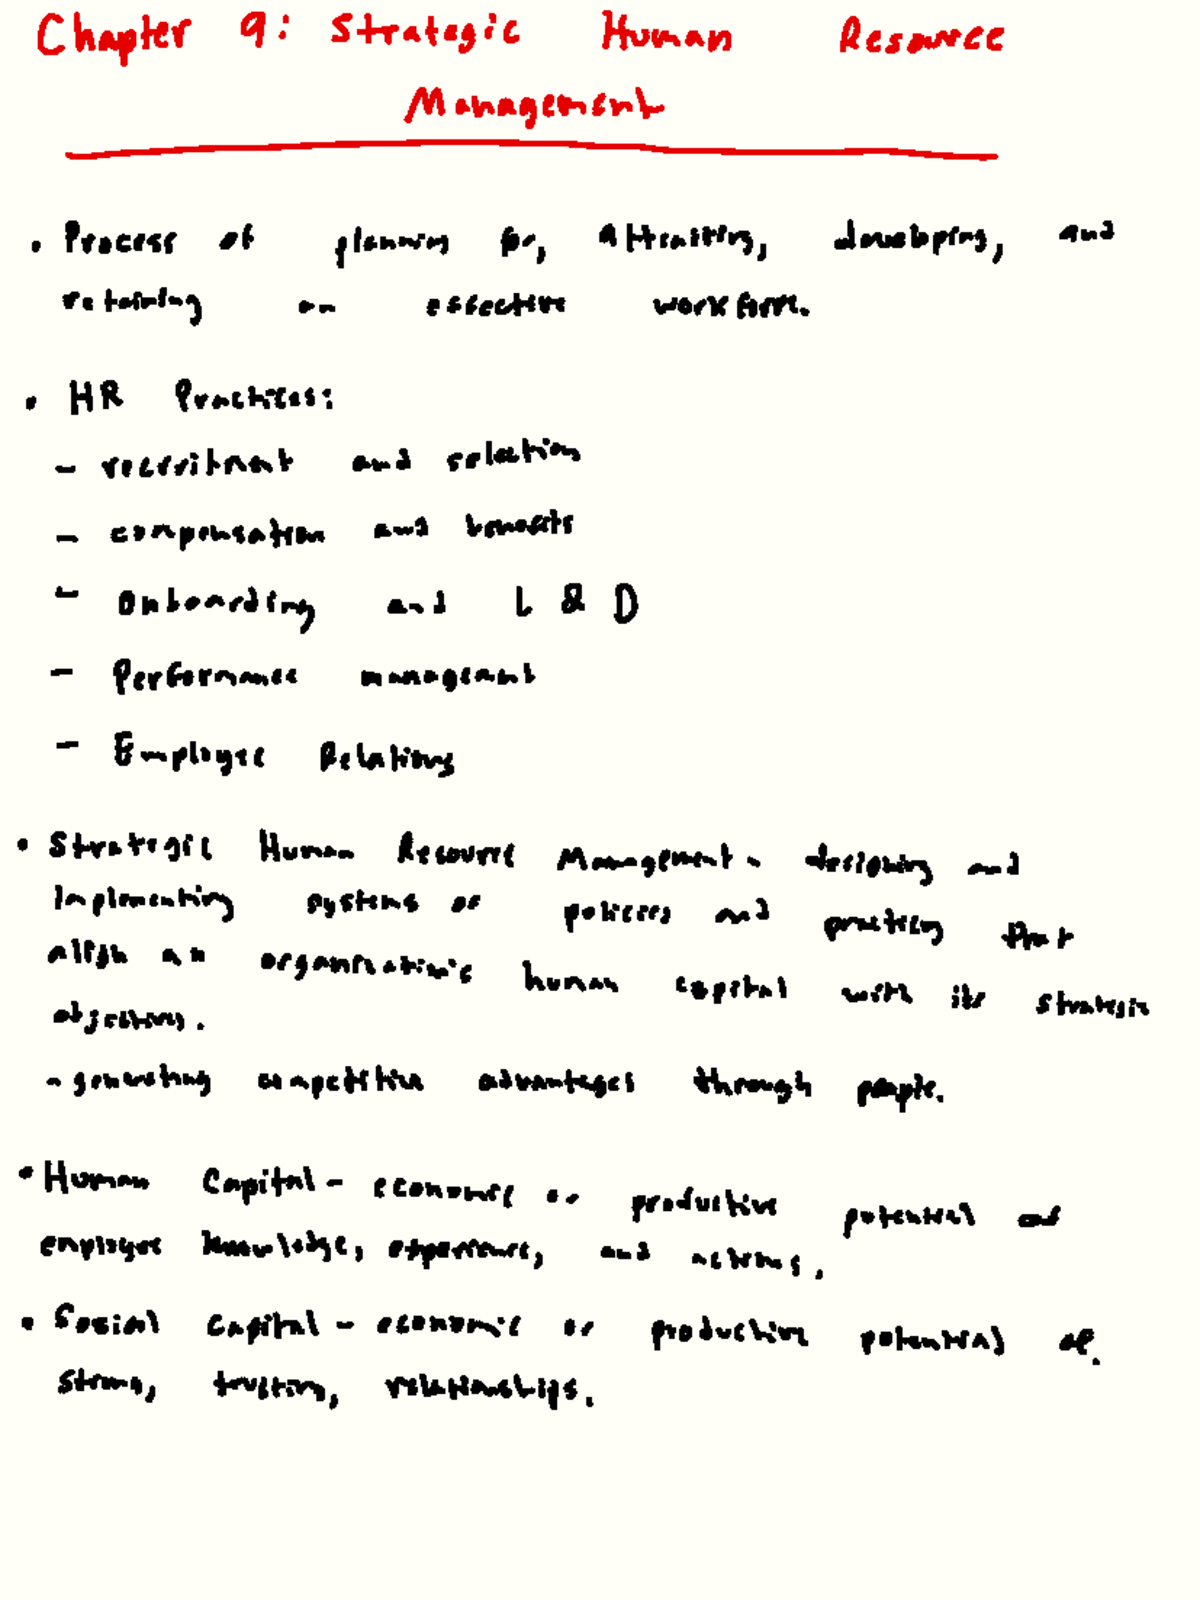 Chapter 9: Strategic Human Resource
Management
• Process of planning for, attracting, developing, and
retaining an effective workforce.
• HR Practices:
- recruitment and selection
- compensation and benefits
- Onboarding and L & D
- Performance management
- Employee Relations
• Strategic Human Resource Management - designing and
implementing systems of policies and practices that
align an organization's human capital with its strategic
objectives.
- generating competitive advantages through people.
• Human Capital - economic or productive potential of
employee knowledge, experience, and actions.
• Social Capital - economic or productive potential of.
strong, trusting, relationships.